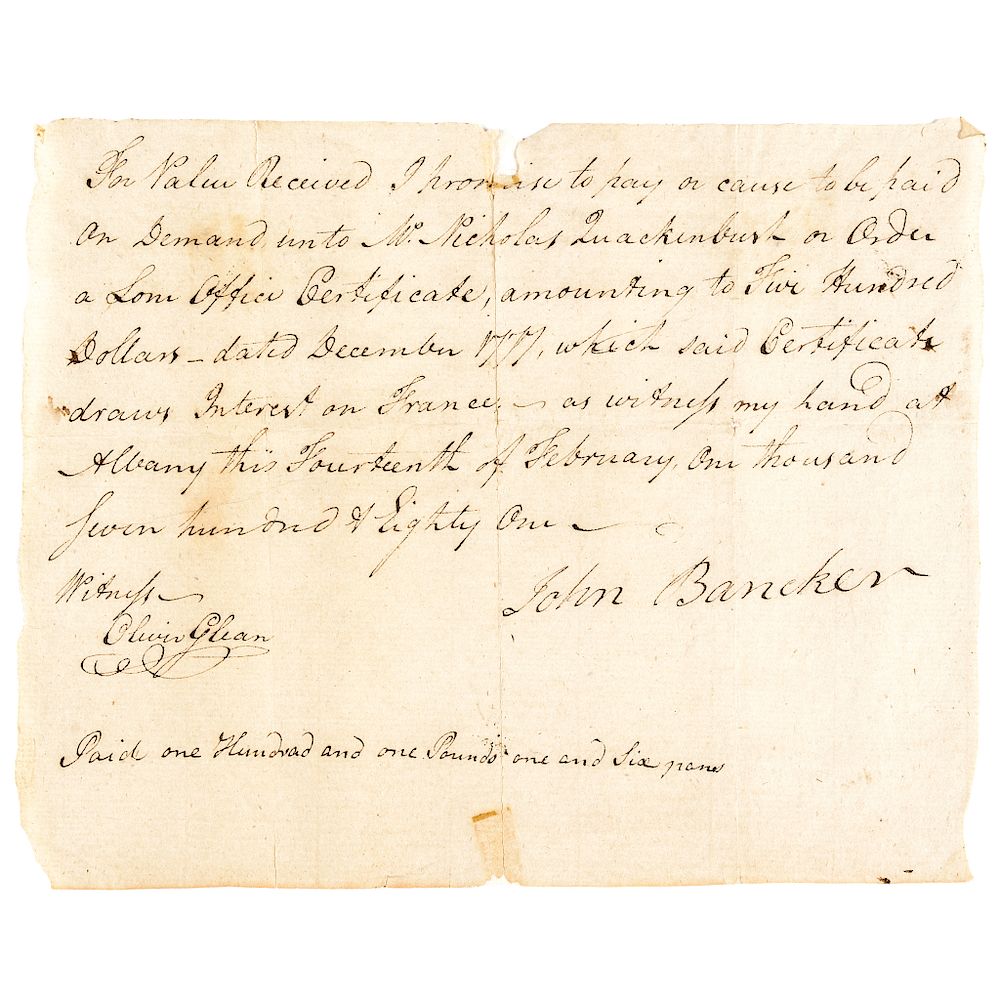 For Value Received I promise to pay or cause to be paid
on Demand unto Mr. Nicholas Quackenbush or Order
a Lone Office Certificate, amounting to Five Hundred
Dollars – dated December 1777, which said Certificate
draws Interest on France, – as witness my hand at
Albany this Fourteenth of February, One thousand
Seven hundred & Eighty One –
Witness –
John Bancker
Oliver Glean
Paid one Hundrad and one Pounds one and Six pance